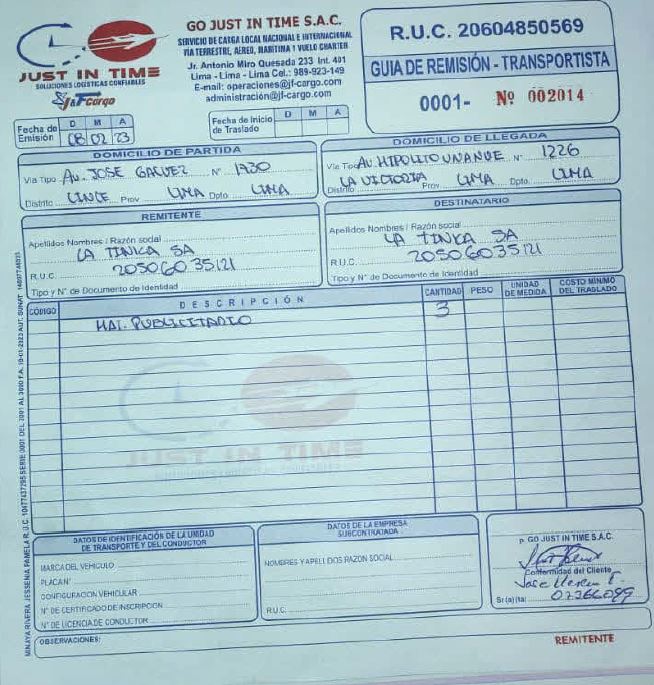 JUST IN TIME
SOLUCIONES LOGÍSTICAS CONFIABLES
J&F Cargo
GO JUST IN TIME S.A.C.
SERVICIO DE CARGA LOCAL NACIONAL E INTERNACIONAL
VÍA TERRESTRE, AEREO, MARITIMA Y VUELO CHARTER
Jr. Antonio Miro Quesada 233 Int. 401
Lima - Lima - Lima Cel.: 989-923-149
E-mail: operaciones@jf-cargo.com
administración@jf-cargo.com
R.U.C. 20604850569
GUIA DE REMISIÓN - TRANSPORTISTA
0001- Nº 002014
Fecha de Emisión D M A
08 02 23
Fecha de Inicio de Traslado D M A
DOMICILIO DE PARTIDA
Via Tipo AV. JOSE GALVEZ N° 1930
Distrito LINCE Prov LIMA Dpto LIMA
DOMICILIO DE LLEGADA
Via Tipo AV. HIPOLITO UNANUE N° 1226
Distrito LA VICTORIA Prov LIMA Dpto. LIMA
REMITENTE
Apellidos Nombres / Razón social
LA TINKA SA
R.U.C. 20506035121
Tipo y N° de Documento de Identidad
DESTINATARIO
Apellidos Nombres / Razón social
LA TINKA SA
R.U.C. 20506035121
Tipo y N° de Documento de Identidad
CÓDIGO DESCRIPCIÓN CANTIDAD PESO UNIDAD DE MEDIDA COSTO MINIMO DEL TRASLADO
MAT. PUBLICITARIO 3
JUST IN TIME
DATOS DE IDENTIFICACIÓN DE LA UNIDAD
DE TRANSPORTE Y DEL CONDUCTOR
MARCA DEL VEHICULO
PLACA N°
CONFIGURACION VEHICULAR
N° DE CERTIFICADO DE INSCRIPCION
N° DE LICENCIA DE CONDUCTOR
DATOS DE LA EMPRESA
SUBCONTRATADA
NOMBRES Y APELLIDOS RAZÓN SOCIAL
R.U.C.
p. GO JUST IN TIME S.A.C.
Conformidad del Cliente
Jose
Sr(a)(ta)
OBSERVACIONES:
REMITENTE